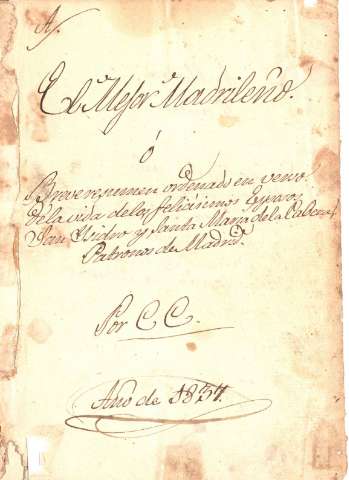 El Mejor Madrileño.
ó
Breve resumen ordenado en verso
de la vida de los felicísimos Esposos
San Ysidro y Santa María de la Cabeza
Patronos de Madrid.
Por C C.
Año de 1837.